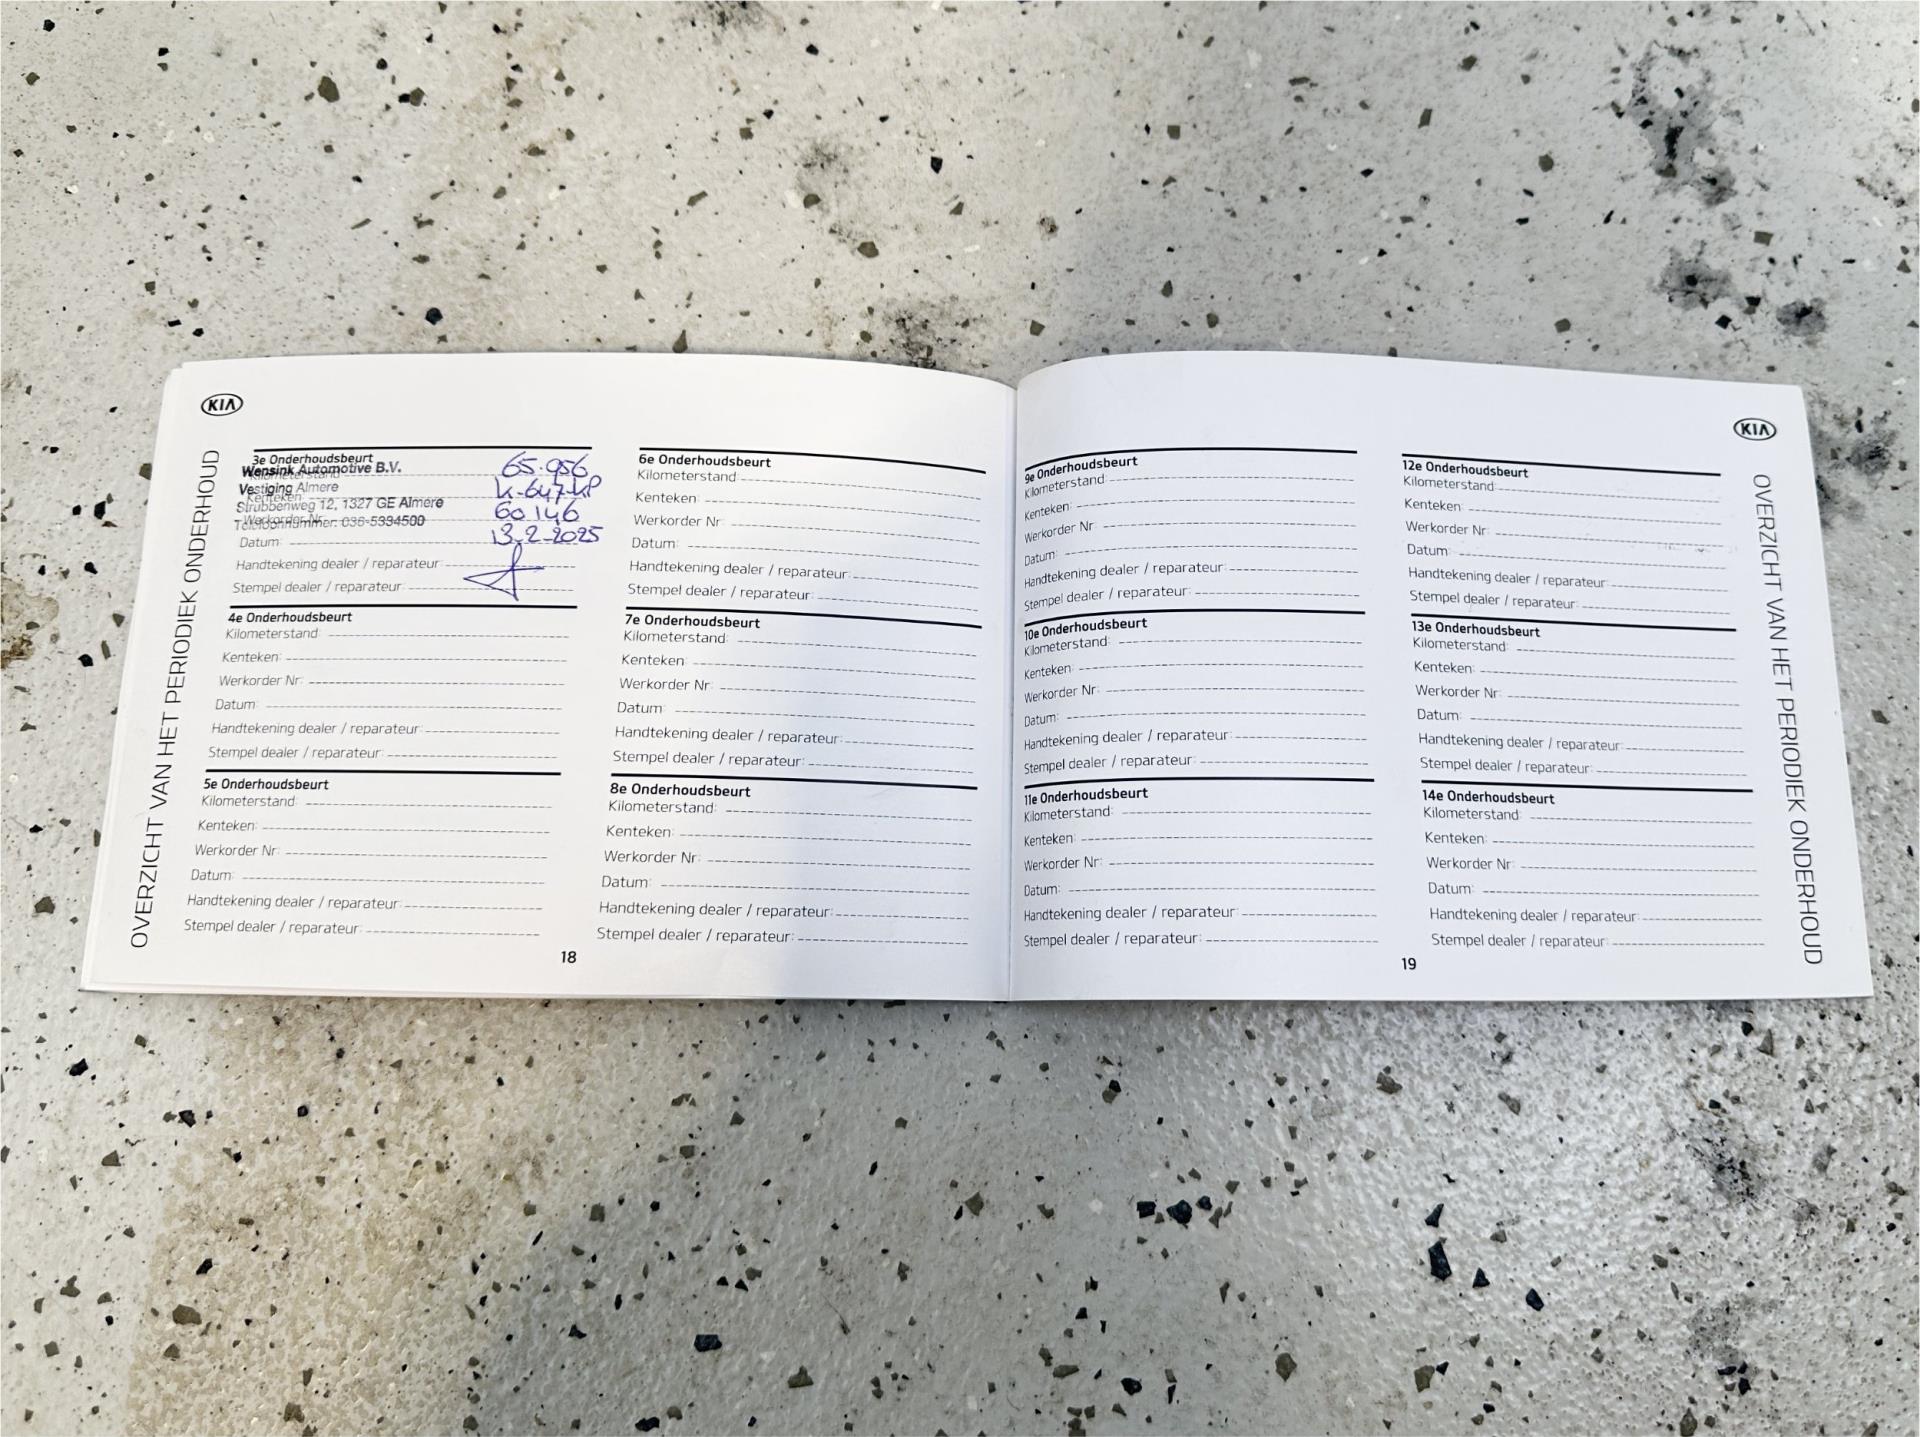 KIA
OVERZICHT VAN HET PERIODIEK ONDERHOUD
3e Onderhoudsbeurt
Wensink Automotive B.V.
Kilometerstand 65.956
Vestiging Almere
Kenteken K-647-KP
Strubbenweg 12, 1327 GE Almere
Werkorder Nr: 60146
Telefoonnummer: 036-5394500
Datum: 13-2-2025
Handtekening dealer / reparateur:
Stempel dealer / reparateur:
4e Onderhoudsbeurt
Kilometerstand:
Kenteken:
Werkorder Nr:
Datum:
Handtekening dealer / reparateur:
Stempel dealer / reparateur:
5e Onderhoudsbeurt
Kilometerstand:
Kenteken:
Werkorder Nr:
Datum:
Handtekening dealer / reparateur:
Stempel dealer / reparateur:
6e Onderhoudsbeurt
Kilometerstand:
Kenteken:
Werkorder Nr:
Datum:
Handtekening dealer / reparateur:
Stempel dealer / reparateur:
7e Onderhoudsbeurt
Kilometerstand:
Kenteken:
Werkorder Nr:
Datum:
Handtekening dealer / reparateur:
Stempel dealer / reparateur:
8e Onderhoudsbeurt
Kilometerstand:
Kenteken:
Werkorder Nr:
Datum:
Handtekening dealer / reparateur:
Stempel dealer / reparateur:
18
9e Onderhoudsbeurt
Kilometerstand:
Kenteken:
Werkorder Nr:
Datum:
Handtekening dealer / reparateur:
Stempel dealer / reparateur:
10e Onderhoudsbeurt
Kilometerstand:
Kenteken:
Werkorder Nr:
Datum:
Handtekening dealer / reparateur:
Stempel dealer / reparateur:
11e Onderhoudsbeurt
Kilometerstand:
Kenteken:
Werkorder Nr:
Datum:
Handtekening dealer / reparateur:
Stempel dealer / reparateur:
12e Onderhoudsbeurt
Kilometerstand:
Kenteken:
Werkorder Nr:
Datum:
Handtekening dealer / reparateur:
Stempel dealer / reparateur:
13e Onderhoudsbeurt
Kilometerstand:
Kenteken:
Werkorder Nr:
Datum:
Handtekening dealer / reparateur:
Stempel dealer / reparateur:
14e Onderhoudsbeurt
Kilometerstand:
Kenteken:
Werkorder Nr:
Datum:
Handtekening dealer / reparateur:
Stempel dealer / reparateur:
19
KIA
OVERZICHT VAN HET PERIODIEK ONDERHOUD